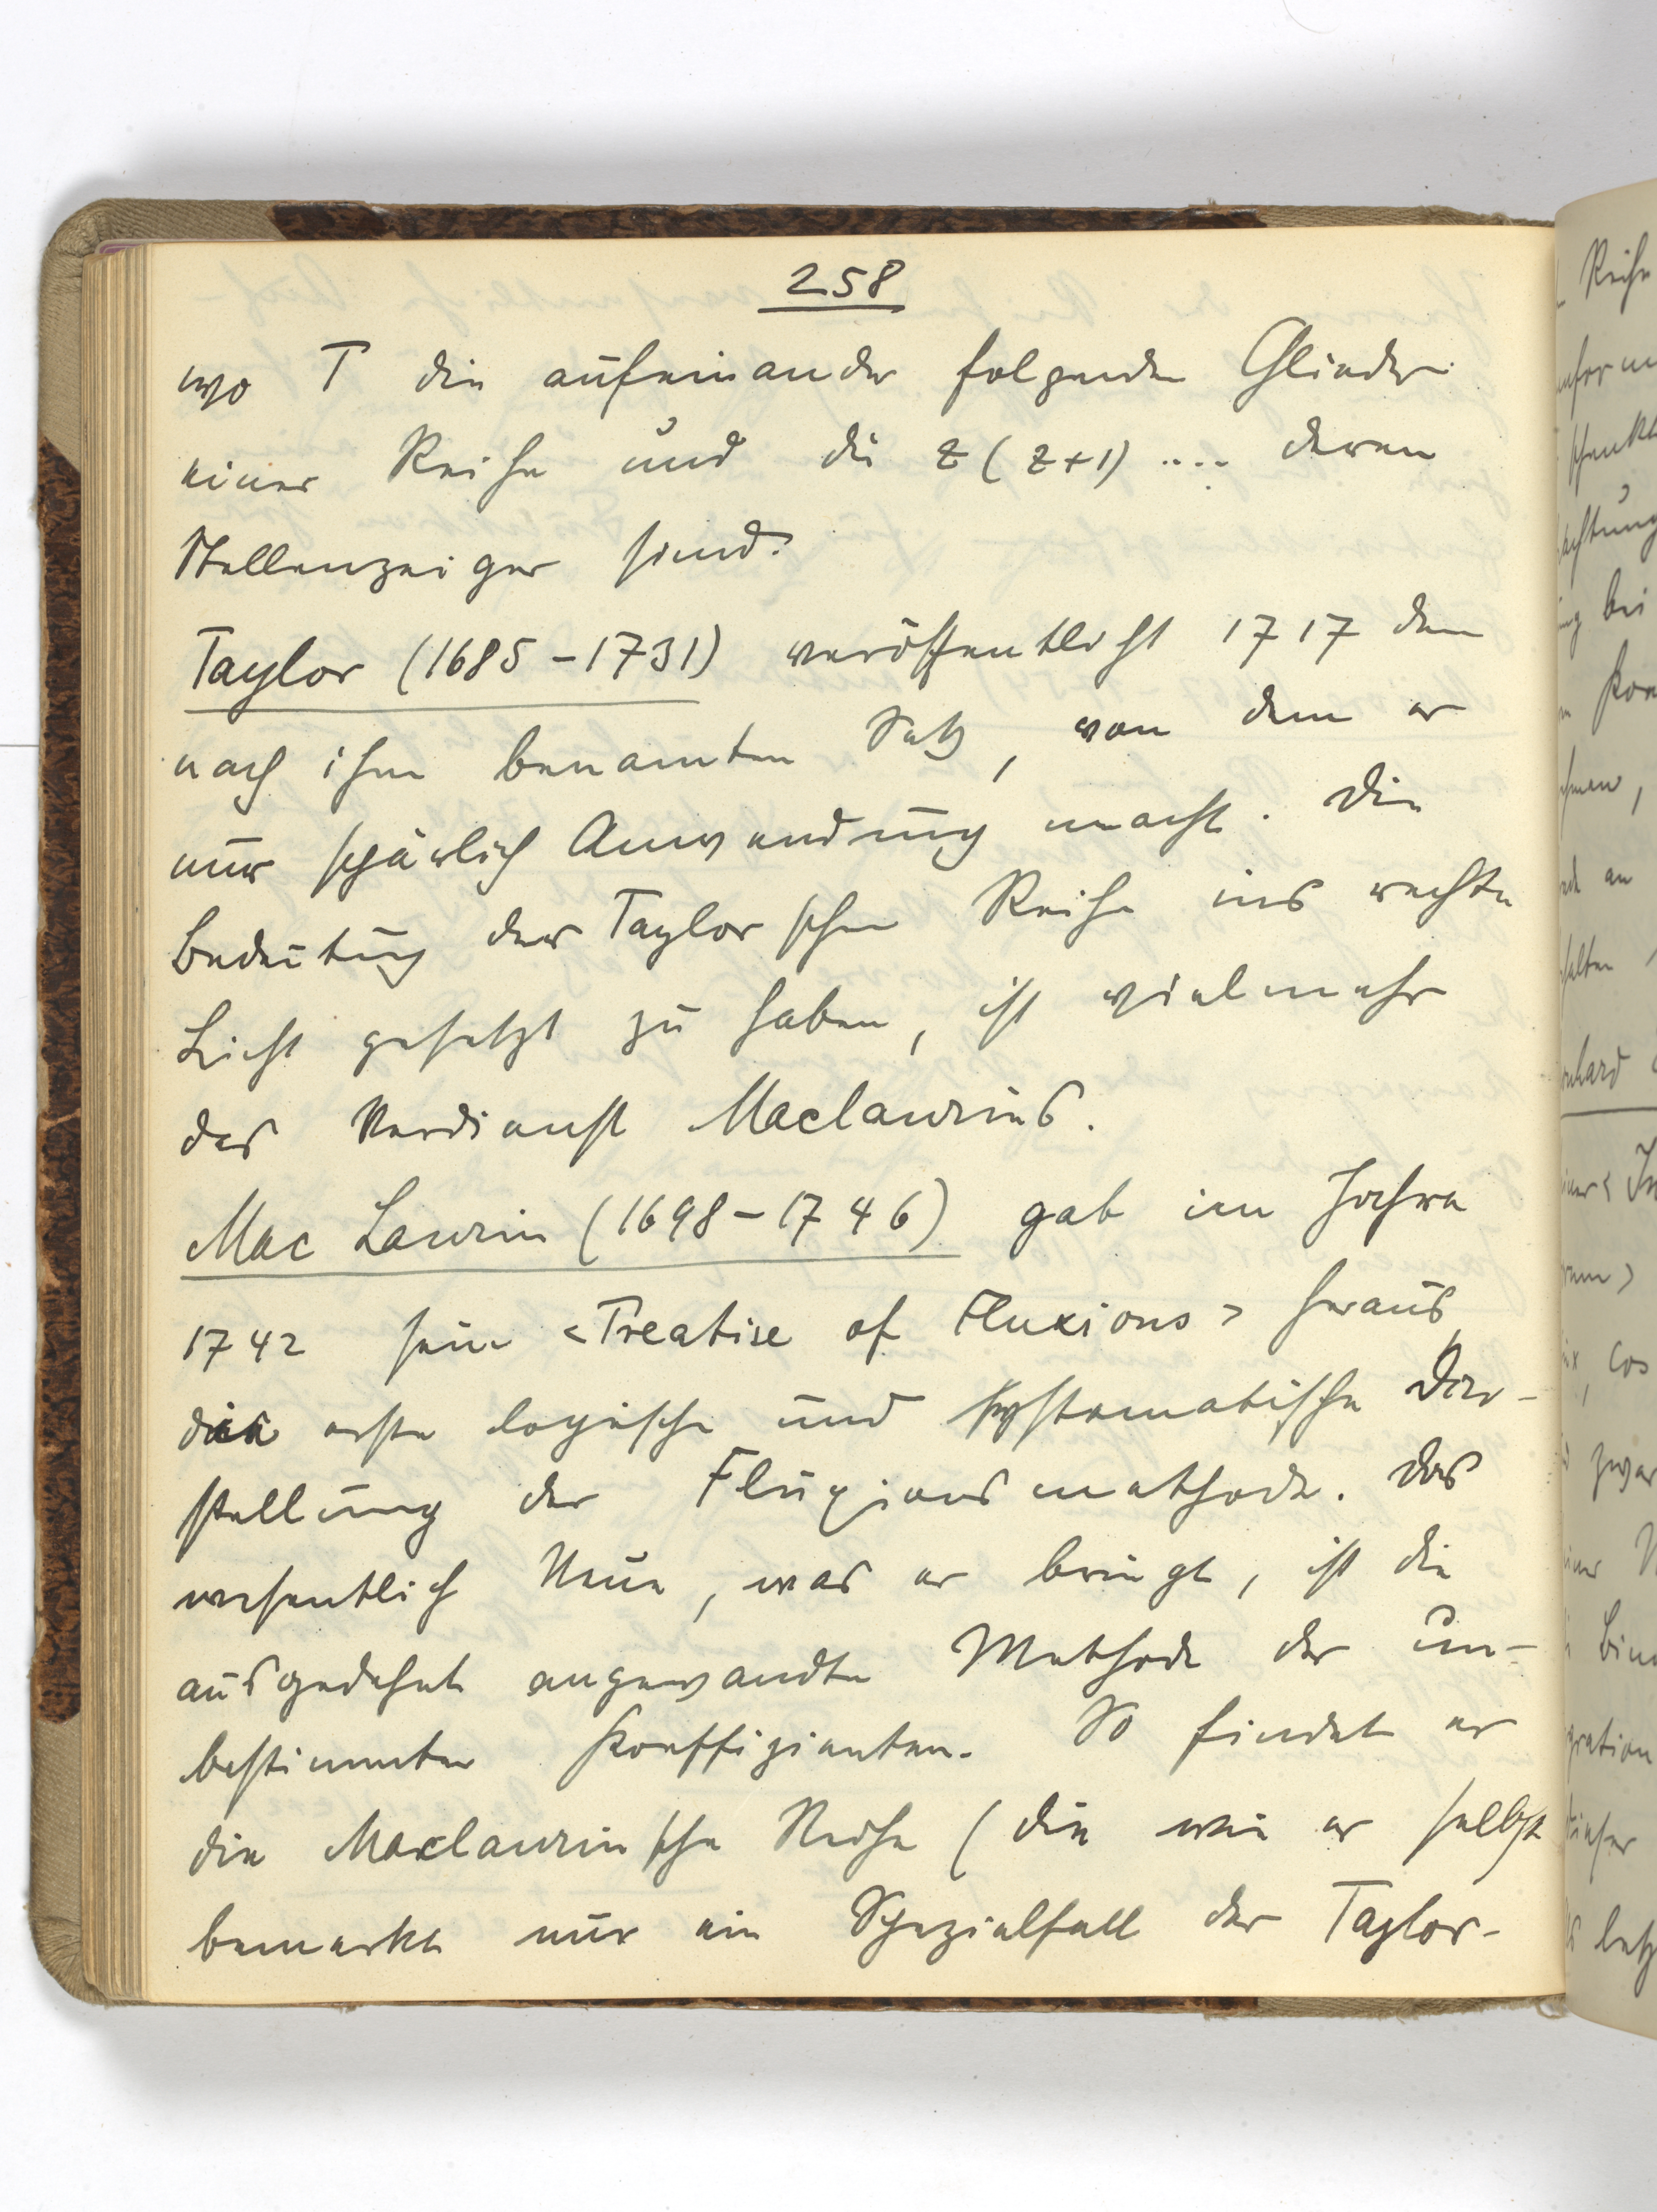 258
wo T die aufeinander folgenden Glieder
einer Reihe und die z (z+1) .... deren
Stellenzeiger sind.
Taylor (1685-1731) veröffentlicht 1717 den
nach ihm benannten Satz, von dem er
nur spärlich Anwendung macht. Die
Bedeutung der Taylorschen Reihe ins rechte
Licht gesetzt zu haben, ist vielmehr
das Verdienst Maclaurins.
Mac Laurin (1698-1746) gab im Jahre
1742 sein <Treatise of Fluxions> heraus,
die erste logische und systematische Dar-
stellung der Fluxionsmethode. Das
wesentlich Neue, was er bringt, ist die
ausgedehnt angewandte Methode der un-
bestimmten Koeffizienten. So findet er
die Maclaurinsche Reihe (die wie er selbst
bemerkt nur ein Spezialfall der Taylor-